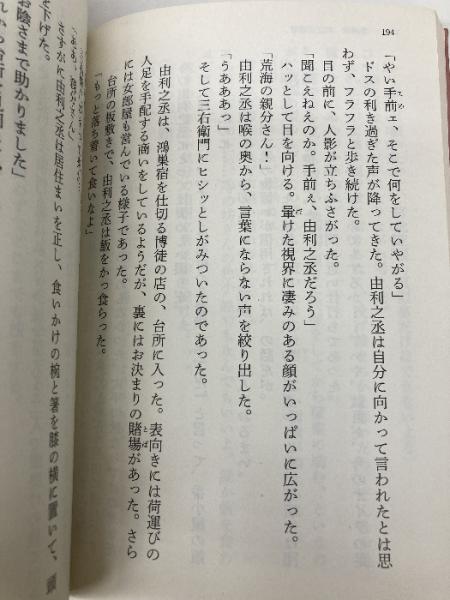 194
「やい手前ェ、そこで何をしていやがる」
ドスの利き過ぎた声が降ってきた。由利之丞は自分に向かって言われたとは思
わず、フラフラと歩き続けた。
目の前に、人影が立ちふさがった。
「聞こえねえのか。手前ェ、由利之丞だろう」
ハッとして目を向ける。暈けた視界に凄みのある顔がいっぱいに広がった。
「荒海の親分さん！」
由利之丞は喉の奥から、言葉にならない声を絞り出した。
「うああぁっ」
そして三右衛門にヒシッとしがみついたのであった。
由利之丞は、鴻巣宿を仕切る博徒の店の、台所に入った。表向きには荷運びの
人足を手配する商いをしているようだが、裏にはお決まりの賭場があった。さら
には女郎屋も営んでいる様子であった。
台所の板敷きで、由利之丞は飯をかっ食らった。
「もっと落ち着いて食いなよ」
さすがに由利之丞は居住まいを正し、食いかけの椀と箸を膝の横に置いて、頭
を下げた。
お陰さまで助かりました」